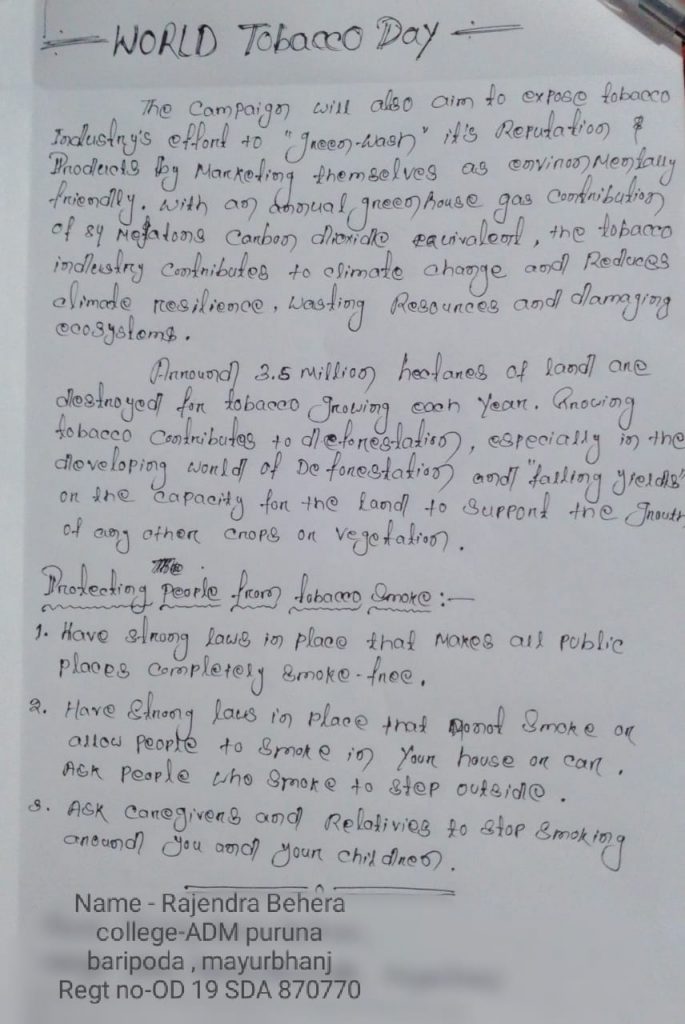 WORLD Tobacco Day
The Campaign will also aim to expose tobacco
Industry's effort to "green-wash" it's Reputation &
Products by Marketing themselves as environmentally
friendly. with an annual greenhouse gas contribution
of 84 Megatons Carbon dioxide equivalent, the tobacco
industry contributes to climate change and Reduces
climate resilience, wasting Resources and damaging
ecosystems.
Around 3.5 million hectares of land are
destroyed for tobacco growing each Year. Growing
tobacco contributes to deforestation, especially in the
developing world of Deforestation and "falling yields"
or the capacity for the land to support the Growth
of any other crops or vegetation.
Protecting People from tobacco Smoke :-
1. Have strong laws in place that Makes all public
places completely smoke-free.
2. Have Strong laws in place that Donot Smoke or
allow people to smoke in Your house or car.
Ask people who smoke to step outside.
3. Ask caregivers and Relativies to stop smoking
around you and your children.
Name - Rajendra Behera
college-ADM puruna
baripoda , mayurbhanj
Regt no-OD 19 SDA 870770